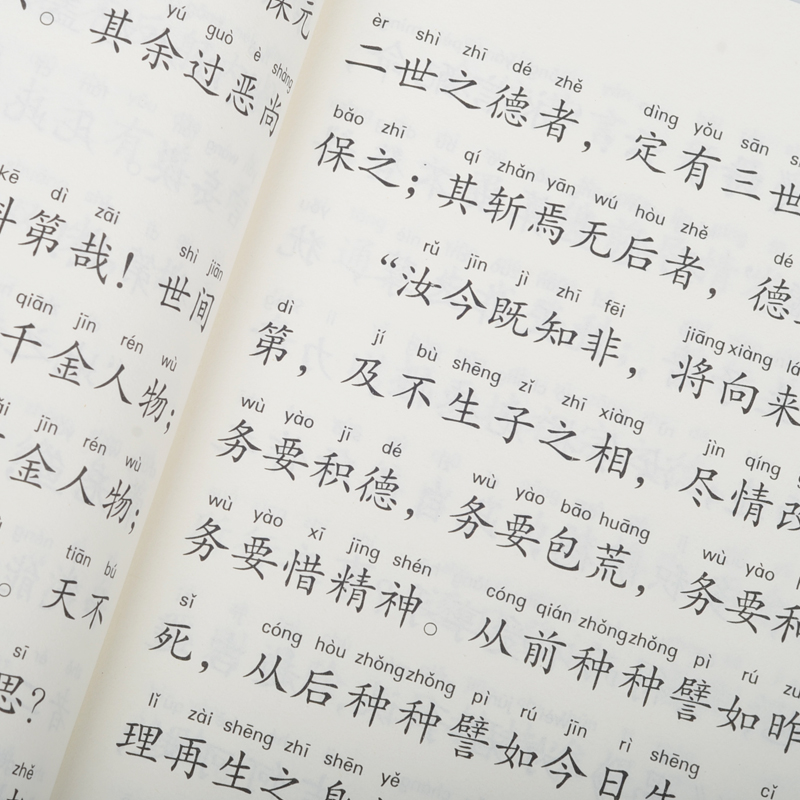 保元
yú guò è shàng
。其余过恶尚
kē dì zāi
科第哉！
shì jiān
世间
qiān jīn rén wù
千金人物；
jīn rén wù
金人物；
tiān bú
。天不
sī
思？
zhě
èr shì zhī dé zhě dìng yǒu sān
二世之德者，定有三世
bǎo zhī qí zhǎn yān wú hòu zhě dé
保之；其斩焉无后者，德
rǔ jīn jì zhī fēi jiāng xiàng
“汝今既知非，将向来
dì jí bù shēng zǐ zhī xiàng jìn qíng
第，及不生子之相，尽情改
wù yào jī dé wù yào bāo huāng wù yào
务要积德，务要包荒，务要和
wù yào xī jīng shén cóng qián zhǒng zhǒng pì rú
务要惜精神。从前种种譬如昨
sǐ cóng hòu zhǒng zhǒng pì rú jīn rì shēng cǐ
死，从后种种譬如今日生
lǐ zài shēng zhī shēn yě
理再生之身